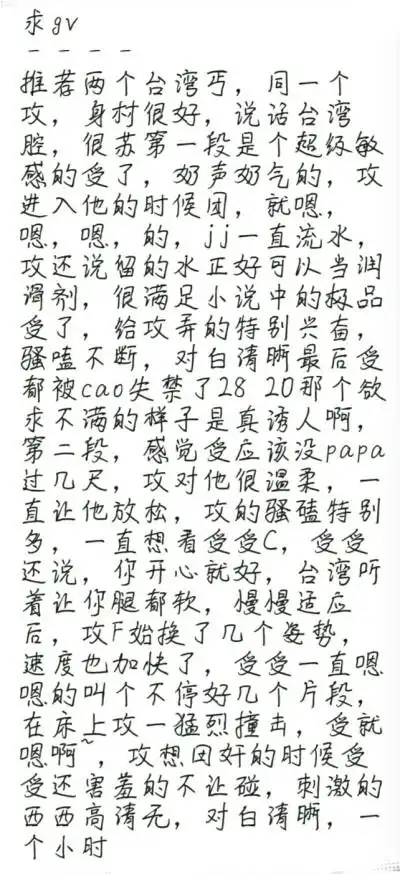 求gv
- - - -
推荐两个台湾丐，同一个
攻，身材很好，说话台湾
腔，很苏第一段是个超级敏
感的受了，奶声奶气的，攻
进入他的时候团，就嗯，
嗯，嗯，的，jj一直流水，
攻还说留的水正好可以当润
滑剂，很满足小说中的极品
受了，给攻弄的特别兴奋，
骚嗑不断，对白清晰最后受
都被cao失禁了28 20那个欲
求不满的样子是真诱人啊，
第二段，感觉受应该没papa
过几尺，攻对他很温柔，一
直让他放松，攻的骚磕特别
多，一直想看受受C，受受
还说，你开心就好，台湾听
着让你腿都软，慢慢适应
后，攻F始换了几个姿势，
速度也加快了，受受一直嗯
嗯的叫个不停好几个片段，
在床上攻一猛烈撞击，受就
嗯啊~，攻想囝奸的时候受
受还害羞的不让碰，刺激的
西西高清无，对白清晰，一
个小时